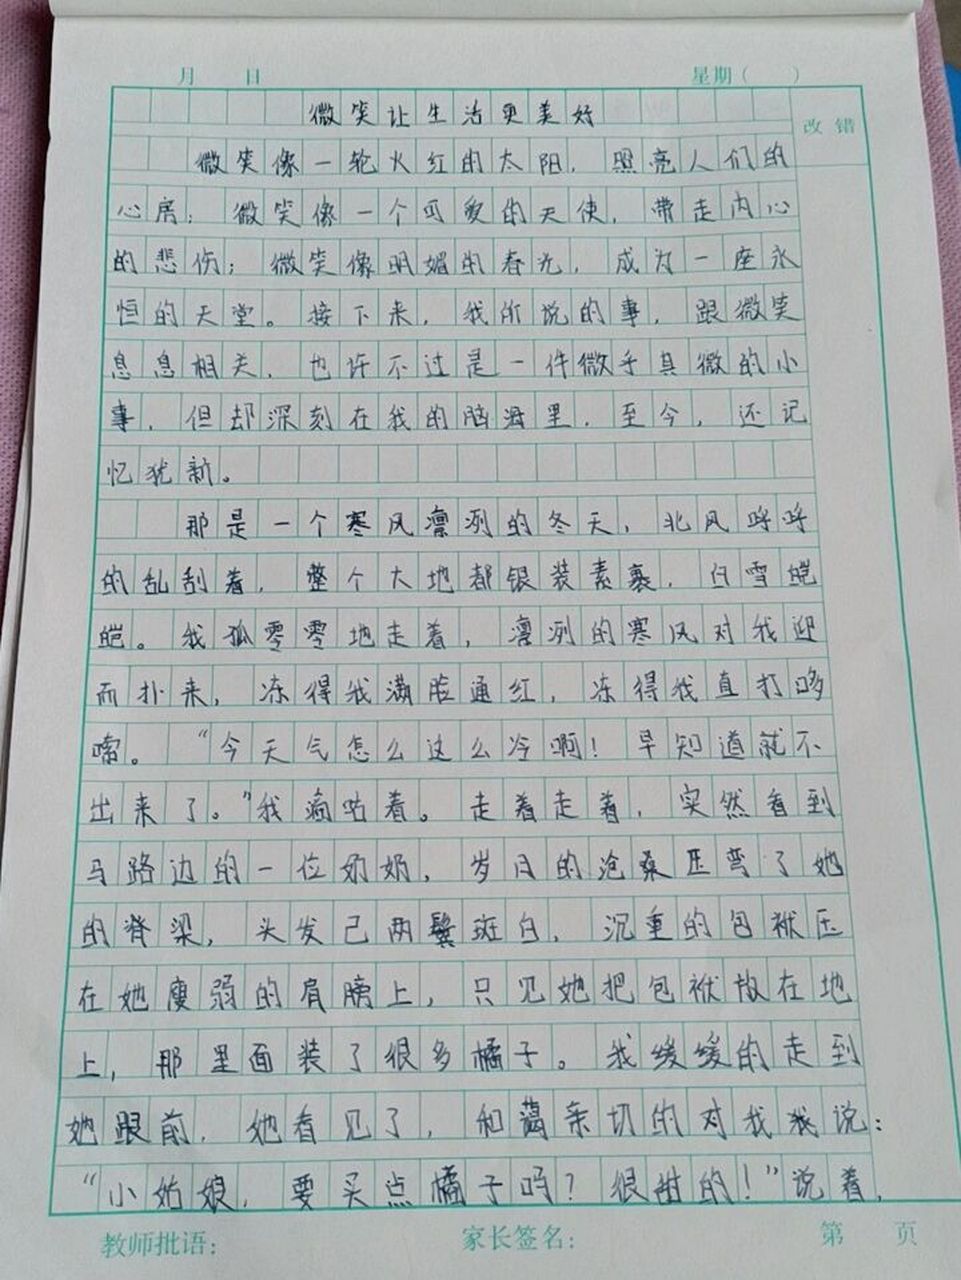 月 日 星期( )
微笑让生活更美好
改错
微笑像一轮火红的太阳，照亮人们的
心房；微笑像一个可爱的天使，带走内心
的悲伤；微笑像明媚的春光，成为一座永
恒的天堂。接下来，我所说的事，跟微笑
息息相关，也许不过是一件微乎其微的小
事，但却深刻在我的脑海里，至今，还记
忆犹新。
那是一个寒风凛冽的冬天，北风呼呼
的乱刮着，整个大地都银装素裹，白雪皑
皑。我孤零零地走着，凛冽的寒风对我迎
而扑来，冻得我满脸通红，冻得我直打哆
嗦。“今天气怎么这么冷啊！早知道就不
出来了。”我嘀咕着。走着走着，突然看到
马路边的一位奶奶，岁月的沧桑压弯了她
的脊梁，头发已两鬓斑白，沉重的包袱压
在她瘦弱的肩膀上，只见她把包袱放在地
上，那里面装了很多橘子。我缓缓的走到
她跟前，她看见了，和蔼亲切的对我我说：
“小姑娘，要买点橘子吗？很甜的！”说着，
教师批语： 家长签名： 第 页